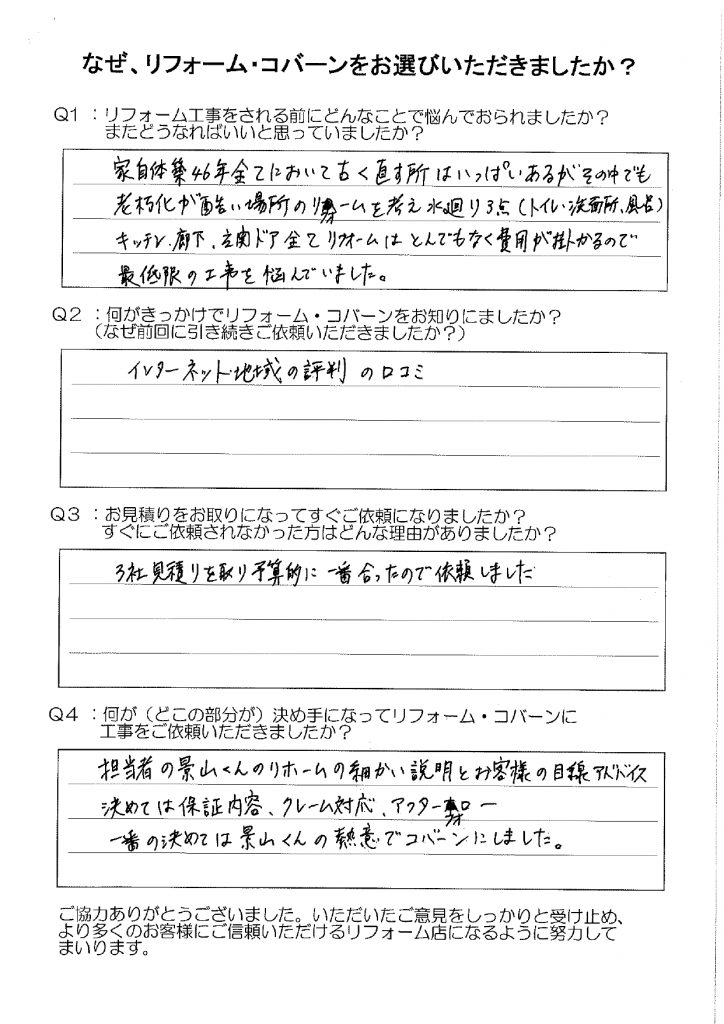 なぜ、リフォーム・コバーンをお選びいただきましたか？
Q1 ：リフォーム工事をされる前にどんなことで悩んでおられましたか？
またどうなればいいと思っていましたか？
家自体築46年全てにおいて古く直す所はいっぱいあるがその中でも
老朽化が酷い場所のリフォームを考え水廻り3点(トイレ・洗面所、風呂)
キッチン、廊下、玄関ドア全てリフォームはとんでもなく費用が掛かるので
最低限の工事を悩んでいました。
Q2 ：何がきっかけでリフォーム・コバーンをお知りにましたか？
（なぜ前回に引き続きご依頼いただきましたか？）
インターネット地域の評判の口コミ
Q3 ：お見積りをお取りになってすぐご依頼になりましたか？
すぐにご依頼されなかった方はどんな理由がありましたか？
3社見積りを取り予算的に一番合ったので依頼しました
Q4 ：何が（どこの部分が）決め手になってリフォーム・コバーンに
工事をご依頼いただきましたか？
担当者の景山くんのリホームの細かい説明とお客様の目線アドバイス
決めては保証内容、クレーム対応、アフターフォロー
一番の決めては景山くんの熱意でコバーンにしました。
ご協力ありがとうございました。いただいたご意見をしっかりと受け止め、
より多くのお客様にご信頼いただけるリフォーム店になるように努力して
まいります。